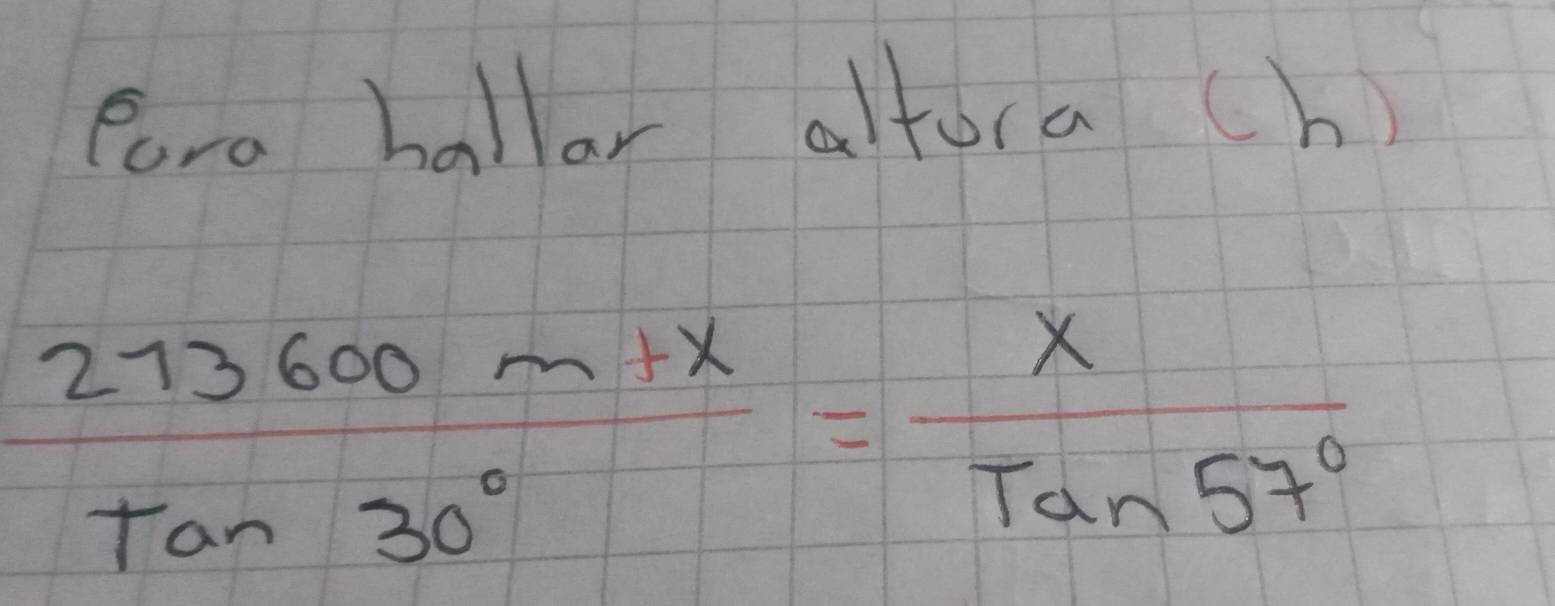 Para hallar altura (h)
213600 m + X = X
Tan 30° Tan 57°